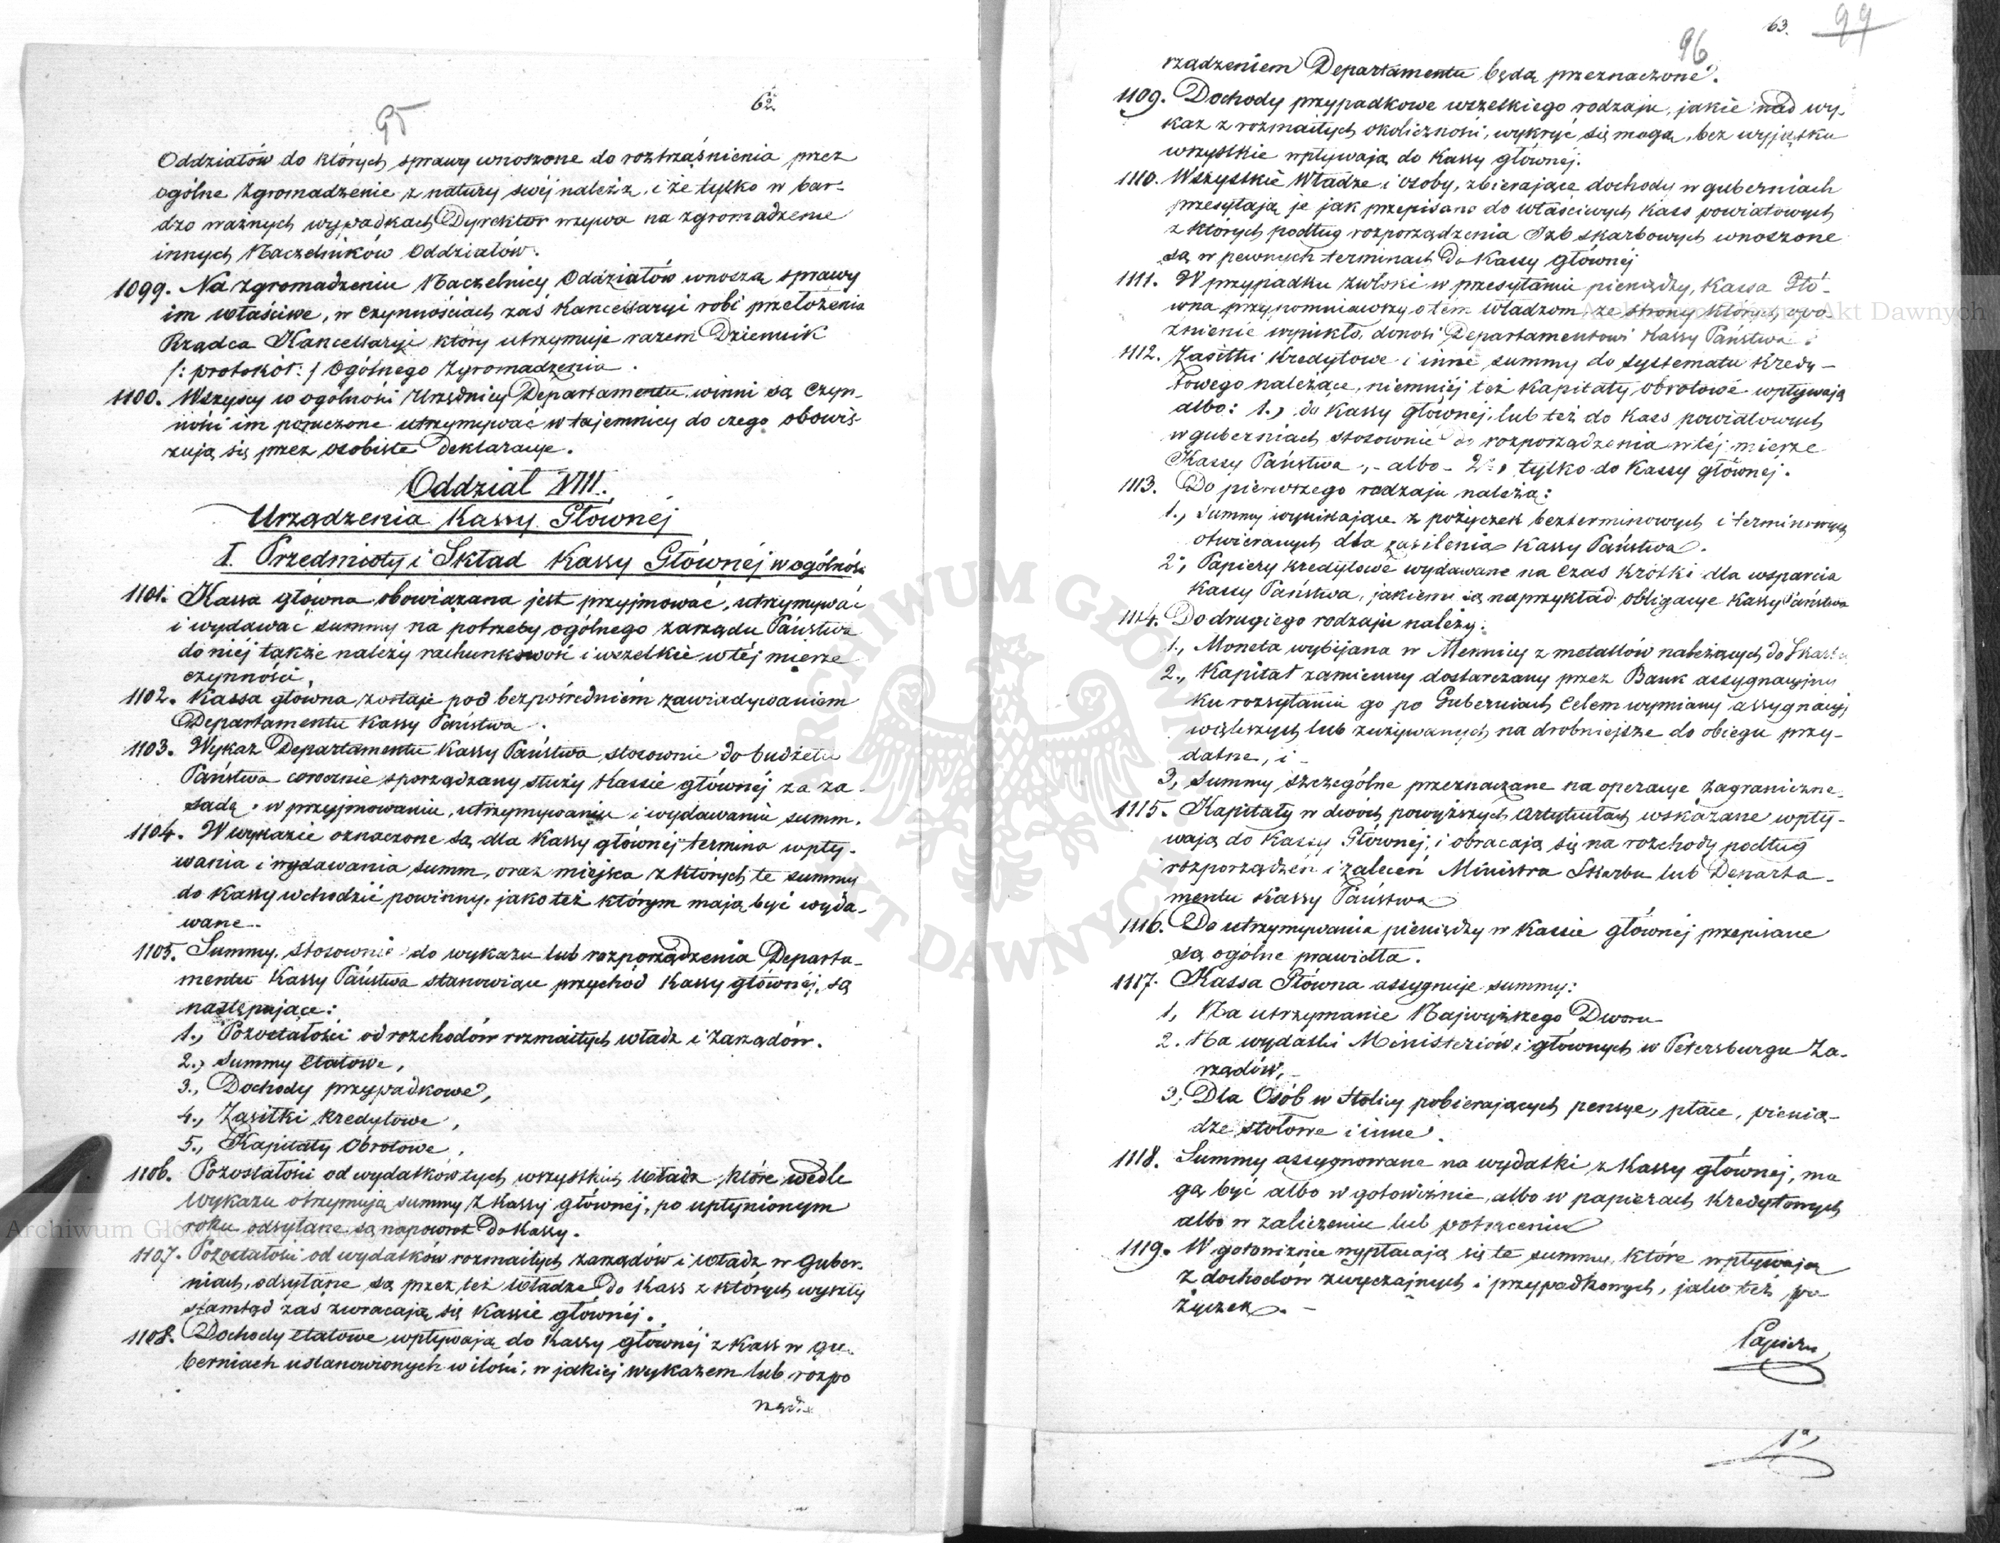 62
95
Oddziałów do których sprawy wnoszone do roztrząśnienia przez
ogólne Zgromadzenie z natury swéj należą, i że tylko w bar-
dzo ważnych wypadkach Dyrektor wzywa na zgromadzenie
innych Naczelników Oddziałów.
1099. Na zgromadzeniu Naczelnicy Oddziałów wnoszą sprawy
im właściwe, w czynnościach zaś Kancellaryi robi przełożenia
Rządca Kancellaryi który utrzymuje razem Dziennik
/: protokół :/ Ogólnego Zgromadzenia.
1100. Wszyscy w ogólności Urzędnicy Departamentu winni są czyn-
ności im poruczone utrzymywać w tajemnicy do czego obowię-
zują się przez osobiste deklaracye.
Oddział VIII.
Urządzenia Kassy Głownéj
I. Przedmioty i Skład Kassy Głównéj w ogólnośi
1101. Kassa główna obowiązana jest przyjmować, utrzymywać
i wydawać summy na potrzeby ogólnego zarządu Państwa
do niéj także należy rachunkowość i wszelkie w téj mierze
czynności.
1102. Kassa główna zostaje pod bezpośredniém zawiadywaniem
Departamentu Kassy Państwa.
1103. Wykaz Departamentu Kassy Państwa, stosownie do budżetu
Państwa corocznie sporządzany służy Kassie głównéj za za-
sadę w przyjmowaniu, utrzymywaniu i wydawaniu summ.
1104. W wykazie oznaczone są dla Kassy głównéj termina wpły-
wania i wydawania summ, oraz miejsca z których te summy
do Kassy wchodzić powinny, jako też którym mają być wyda-
wane.
1105. Summy, stosownie do wykazu lub rozporządzenia Departa-
mentu Kassy Państwa stanowiące przychód Kassy głównéj, są
następujące:
1., Pozostałości od rozchodów rozmaitych władz i Zarządów.
2., Summy Etatowe,
3., Dochody przypadkowe,
4., Zasiłki kredytowe,
5., Kapitały Obrotowe,
1106. Pozostałości od wydatków tych wszystkich Władz, które wedle
wykazu otrzymują summy z Kassy głównéj, po upłynionym
roku odsyłane są napowrót do Kassy.
1107. Pozostałości od wydatków rozmaitych zarządów i władz w Guber-
niach, odsyłane są przez też Władze do Kass z których wyszły
stamtąd zaś zwracają się Kassie głównéj.
1108. Dochody Etatowe wpływają do Kassy głównéj z Kass w gu-
berniach ustanowionych w ilości, w jakiéj wykazem lub rozpo
rządze
63.
99
96
rządzeniem Departamentu będą przeznaczone.
1109. Dochody przypadkowe wszelkiego rodzaju, jakie nad wy-
kaz z rozmaitych okoliczności, wykryć się mogą, bez wyjątku
wszystkie wpływają do Kassy głównéj.
1110. Wszystkie Władze i osoby, zbierające dochody w guberniach
przesyłają je jak przepisano do właściwych Kass powiatowych
z których podług rozporządzenia Izb skarbowych wnoszone
są w pewnych terminach do Kassy głównéj
1111. W przypadku zwłoki w przesyłaniu pieniędzy, Kassa Głó-
wna przypomniawszy o tém Władzom, ze strony których opó-
źnienie wynikło, donosi Departamentowi Kassy Państwa
1112. Zasiłki Kredytowe i inne summy do systematu kredy-
towego należące, niemniéj też kapitały obrotowe wpływają
albo: 1., do Kassy głównéj, lub też do Kass powiatowych
w guberniach stosownie do rozporządzenia w téj mierze
Kassy Państwa, - albo - 2., tylko do Kassy głównéj.
1113. Do pierwszego rodzaju należą:
1., Summy wynikające z pożyczek bezterminowych i terminowych
otwieranych dla zasilenia Kassy Państwa.
2., Papiery kredytowe wydawane na czas krótki dla wsparcia
Kassy Państwa, jakiemi są naprzykład obligacye Kassy Państwa
1114. Do drugiego rodzaju należy:
1., Moneta wybijana w Mennicy z metallów należących do Skarbu
2., Kapitał zamienny dostarczany przez Bank assygnacyjny
ku rozsyłaniu go po Guberniach celem wymiany assygnacyj
większych lub zużywanych na drobniejsze do obiegu przy-
datne, i -
3., Summy szczególne przeznaczane na operacye zagraniczne.
1115. Kapitały w dwóch powyższych artykułach wskazane wpły-
wają do Kassy Głównéj, i obracają się na rozchody podług
rozporządzeń i zaleceń Ministra Skarbu lub Departa-
mentu Kassy Państwa
1116. Do utrzymywania pieniędzy w Kassie głównéj przepisane
są ogólne prawidła.
1117. Kassa Główna assygnuje summy:
1, Na utrzymanie Najwyższego Dworu
2. Na wydatki Ministeriów i głównych w Petersburgu Za-
rządów, -
3, Dla Osób w stolicy pobierających pensye, płace, pienią-
dze stołowe i inne.
1118. Summy assygnowane na wydatki z Kassy głównéj, mo
gą być albo w gotowiźnie, albo w papierach kredytowych
albo w zaliczeniu lub potrąceniu
1119. W gotowiźnie wypłacają się te summy, które wpływają
z dochodów zwyczajnych i przypadkowych, jako też po
życzek. -
Papieru
Archiwum Główne Akt Dawnych
ARCHIWUM GŁÓWNE AKT DAWNYCH